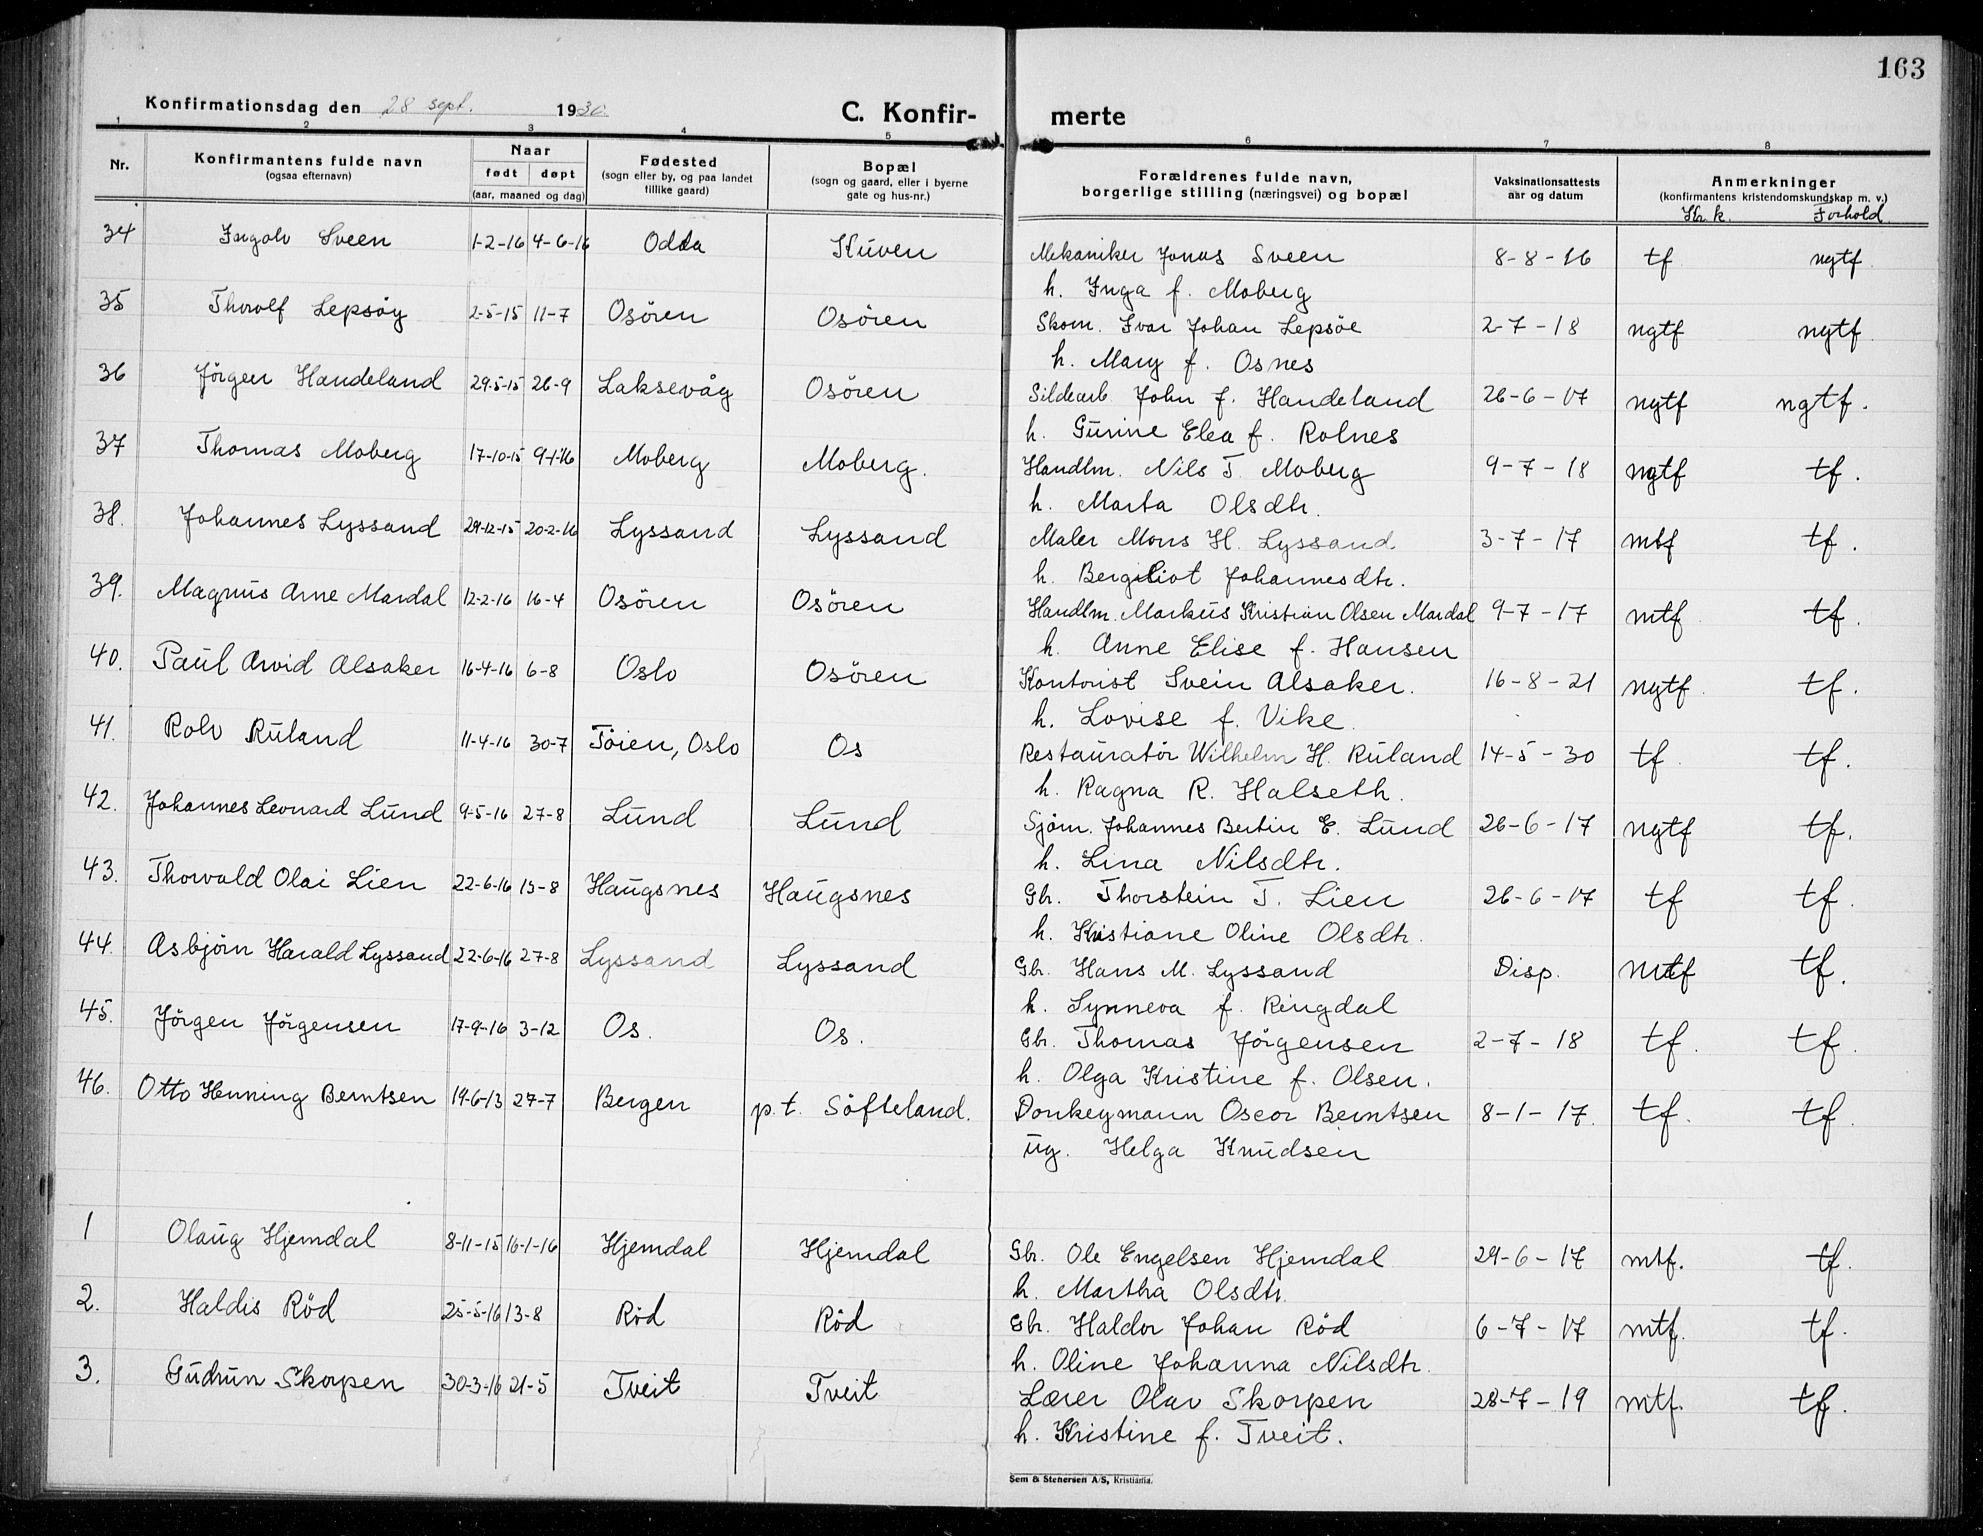 163
Konfirmationsdag den 28 sept. 1930.
C. Konfir-
merte
1 2 3 4 5 6 7 8
Nr.
Konfirmantens fulde navn
(ogsaa efternavn)
Naar
født døpt
(aar, maaned og dag)
Fødested
(sogn eller by, og paa landet
tillike gaard)
Bopæl
(sogn og gaard, eller i byerne
gate og hus-nr.)
Forældrenes fulde navn,
borgerlige stilling (næringsvei) og bopæl
Vaksinationsattests
aar og datum
Anmerkninger
(konfirmantens kristendomskundskap m. v.)
Kr. k. Forhold.
34 Ingolv Sveen 1-2-16 4-6-16 Odda Kuven Mekaniker Jonas Sveen 8-8-16 tf ngtf
h. Inga f. Moberg
35 Thorolf Lepsöy 2-5-15 11-7 Osören Osören Skom. Ivar Johan Lepsöe 2-7-18 ngtf ngtf
h. Mary f. Osnes
36 Jörgen Handeland 29-5-15 26-9 Laksevåg Osören Sildearb. John J. Handeland 26-6-17 ngtf ngtf.
h. Gurine Elea f. Rolnes
37 Thomas Moberg 17-10-15 9-1-16 Moberg Moberg. Handlm. Nils T. Moberg 9-7-18 ngtf tf.
h. Marta Olsdtr.
38. Johannes Lyssand 29-12-15 20-2-16 Lyssand Lyssand Maler Mons H. Lyssand 3-7-17 mtf tf.
h. Bergliot Johannesdtr.
39. Magnus Arne Mardal 12-2-16 16-4 Osören Osören Handlm. Markus Kristian Olsen Mardal 9-7-17 mtf tf.
h. Anne Elise f. Hansen
40. Paul Arvid Alsaker 16-4-16 6-8 Oslo Osören Kontorist Svein Alsaker. 16-8-21 ngtf. tf.
h. Lovise f. Vike.
41. Rolv Ruland 11-4-16 30-7 Töien, Oslo Os Restauratör Wilhelm H. Ruland 14-5-30 tf tf.
h. Ragna R. Halseth.
42. Johannes Leonard Lund 9-5-16 27-8 Lund Lund Sjöm. Johannes Bertin E. Lund 26-6-17 ngtf tf.
h. Lina Nilsdtr.
43. Thorvald Olai Lien 22-6-16 13-8 Haugsnes Haugsnes Gbr. Thorstein T. Lien 26-6-17 tf tf.
h. Kristiane Oline Olsdtr.
44. Asbjörn Harald Lyssand 22-6-16 27-8 Lyssand Lyssand Gbr. Hans M. Lyssand Disp. mtf tf.
h. Synneva f. Ringdal
45. Jörgen Jörgensen 17-9-16 3-12 Os. Os. Gbr. Thomas Jörgensen 2-7-18 tf. tf.
h. Olga Kristine f. Olsen.
46. Otto Henning Berntsen 19-6-13 27-7 Bergen p.t. Söfteland. Donkeymann Oscar Berntsen 8-1-17. tf. tf.
ug. Helga Knudsen
1 Olaug Hjemdal 8-11-15 16-1-16 Hjemdal Hjemdal Gbr. Ole Engelsen Hjemdal 29-6-17 mtf. tf.
h. Martha Olsdtr.
2. Haldis Röd 25-5-16 13-8 Röd Röd Gbr. Haldor Johan Röd 6-7-17 mtf. tf.
h. Oline Johanna Nilsdtr.
3. Gudrun Skorpen 30-3-16 21-5 Tveit Tveit Lærer Olav Skorpen 28-7-19 mtf. tf.
h. Kristine f. Tveit.
Sem & Stenersen A/S, Kristiania.